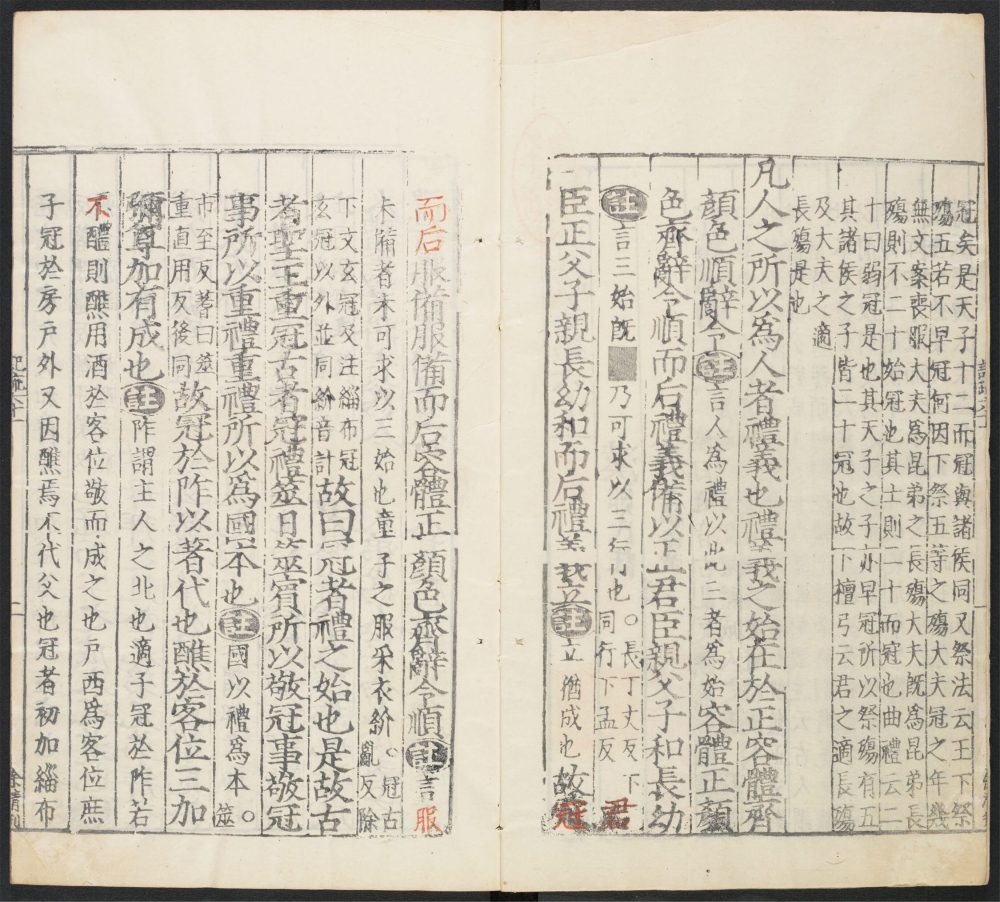 冠矣是天子十二而冠與諸侯同又祭法云王下祭
殤五若不早冠何因下祭五等之殤大夫冠之年幾
無文案喪服大夫爲昆弟之長殤大夫既爲昆弟長
殤則不二十始冠也其士則二十而冠也曲禮云二
十曰弱冠是也其天子之子亦早冠所以祭殤有五
其諸侯之子皆二十冠也故下檀弓云君之適長殤
及大夫之適
長殤是也
凡人之所以爲人者禮義也禮義之始在於正容體齊
顏色順辭令註言人爲禮以此三者爲始容體正顏
色齊辭令順而后禮義備以正君臣親父子和長幼
註言三始既乃可求以三行也。長丁丈反下同行下孟反君
臣正父子親長幼和而后禮義立註立猶成也故冠
而后服備服備而后容體正顏色齊辭令順註言服
未備者未可求以三始也童子之服采衣紒。冠古亂反除
下文玄冠及注緇布冠玄冠以外並同紒音計故曰冠者禮之始也是故古
者聖王重冠古者冠禮筮日筮賓所以敬冠事敬冠
事所以重禮重禮所以爲國本也註國以禮爲本。筮
市至反蓍曰筮重直用反後同故冠於阼以著代也醮於客位三加
彌尊加有成也註阼謂主人之北也適子冠於阼若
不醴則醮用酒於客位敬而成之也戶西爲客位庶
子冠於房戶外又因醮焉不代父也冠者初加緇布